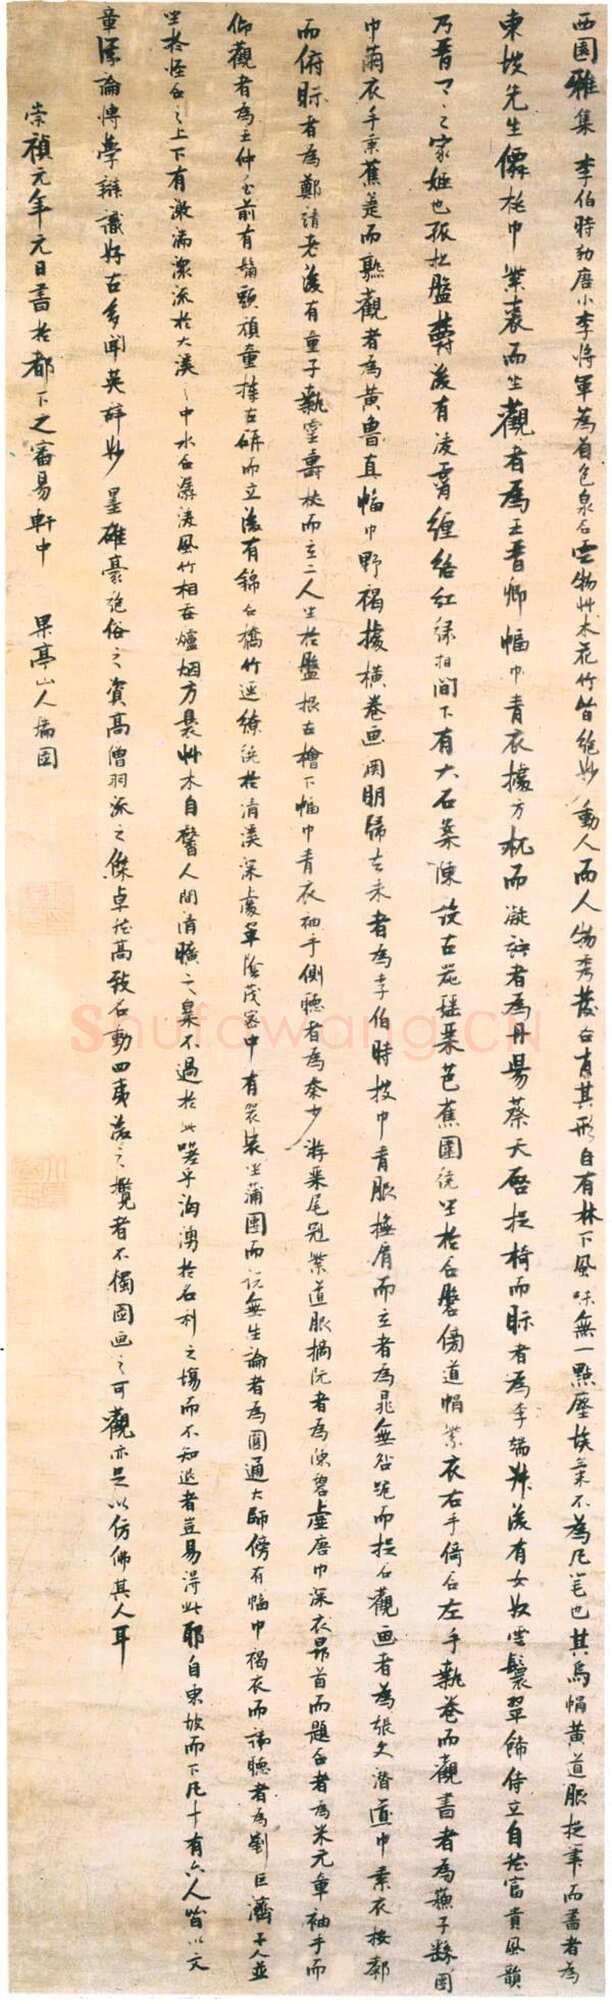 西園雅集 李伯時効唐小李將軍為著色泉石雲物艸木花竹皆絕妙動人而人物秀發各肖其形自有林下風味無一點塵埃氣不為凡筆也其烏帽黃道服捉筆而書者為
東坡先生僊桃巾紫裘而坐觀者為王晉卿幅巾青衣據方机而凝竚者為丹陽蔡天啓捉椅而眎者為李端叔後有女奴雲鬟翠飾侍立自然富貴風韻
乃晉卿之家姬也孤松盤鬱後有凌霄纏絡紅綠相間下有大石案陳設古器瑤琴芭蕉圍繞坐於石磐傍道帽紫衣右手倚石左手執卷而觀書者為蘇子繇團
巾繭衣手秉蕉箑而熟觀者為黃魯直幅巾野褐據橫卷画淵明歸去來者為李伯時披巾青服撫肩而立者為晁無咎跪而捉石觀画者為張文潛道巾素衣按郄
而俯眎者為鄭靖老後有童子執靈壽杖而立二人坐於盤根古檜下幅巾青衣袖手側聽者為秦少游琴尾冠紫道服摘阮者為陳碧虛唐巾深衣昻首而題石者為米元章袖手而
仰觀者為王仲至前有鬅頭頑童捧古硏而立後有錦石橋竹逕繚繞於清溪深處翠陰茂密中有袈裟坐蒲團而說無生論者為圓通大師傍有幅巾褐衣而諦聽者為劉巨濟二人並
坐於怪石之上下有激湍潀流於大溪之中水石潺湲風竹相吞爐烟方裊艸木自馨人間清曠之樂不過於此嗟乎洶湧於名利之塲而不知退者豈易得此耶自東坡而下凡十有六人皆以文
章議論博學辯識好古多聞英辭妙墨雄豪絕俗之資高僧羽流之傑卓然高致名動四夷後之攬者不獨圖画之可觀亦足以仿佛其人耳
崇禎元年元日書於都下之審易軒中 果亭山人瑞圖
Shufawang.CN